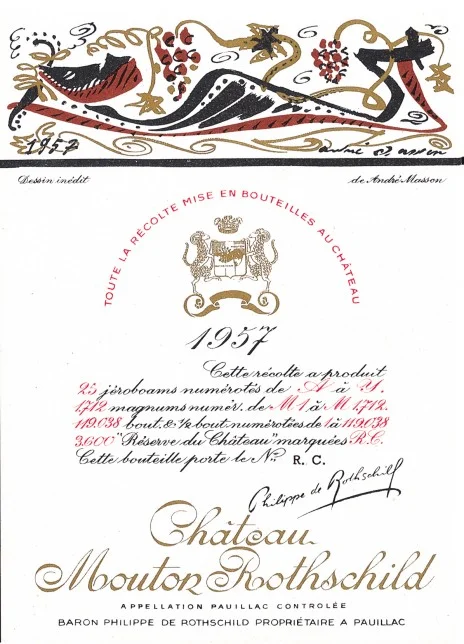 1957
andré Masson
Dessin inédit
de André Masson
TOUTE LA RÉCOLTE MISE EN BOUTEILLES AU CHÂTEAU
1957
Cette récolte a produit
25 jéroboams numérotés de A à Y.
1.712 magnums numér. de M 1 à M 1.712.
119.038 bout. & ½ bout. numérotées de 1 à 119.038
3.600 "Réserve du Château" marquées R.C.
Cette bouteille porte le No. R. C.
Philippe de Rothschild
Château
Mouton Rothschild
APPELLATION PAUILLAC CONTROLÉE
BARON PHILIPPE DE ROTHSCHILD PROPRIÉTAIRE A PAUILLAC